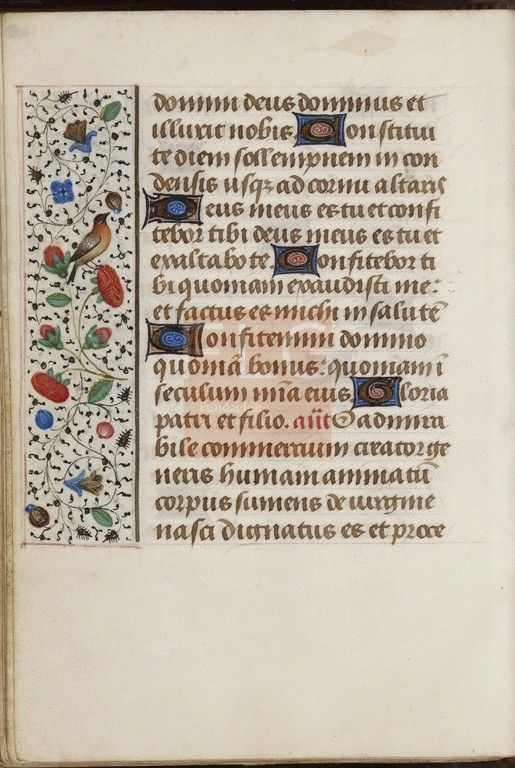 domini deus dominus et
illuxit nobis. Constitui
te diem sollempnem in con
densis usqȝ ad cornu altaris
Deus meus es tu et confi
tebor tibi deus meus es tu et
exaltabo te Confitebor ti
bi quoniam exaudisti me:
et factus es michi in salutē
Confitemini domino
quoniā bonus: quoniam i
seculum mīa eius. Gloria
patri et filio. añt O admira
bile commercium creator ge
neris humani animatū
corpus sumens de virgine
nasci dignatus es et proce
Fundación